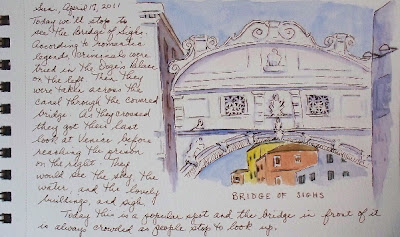 Sun, April 17, 2011
Today we'll stop to
see the Bridge of Sighs.
According to romantic
legends, criminals were
tried in the Doge's Palace
on the left. Then they
were taken across the
canal through the covered
bridge. As they crossed
they got their last
look at Venice before
reaching the prison
on the right. They
would see the sky, the
water, and the lovely
buildings, and sigh.
Today this is a popular spot and the bridge in front of it
is always crowded as people stop to look up.
BRIDGE OF SIGHS